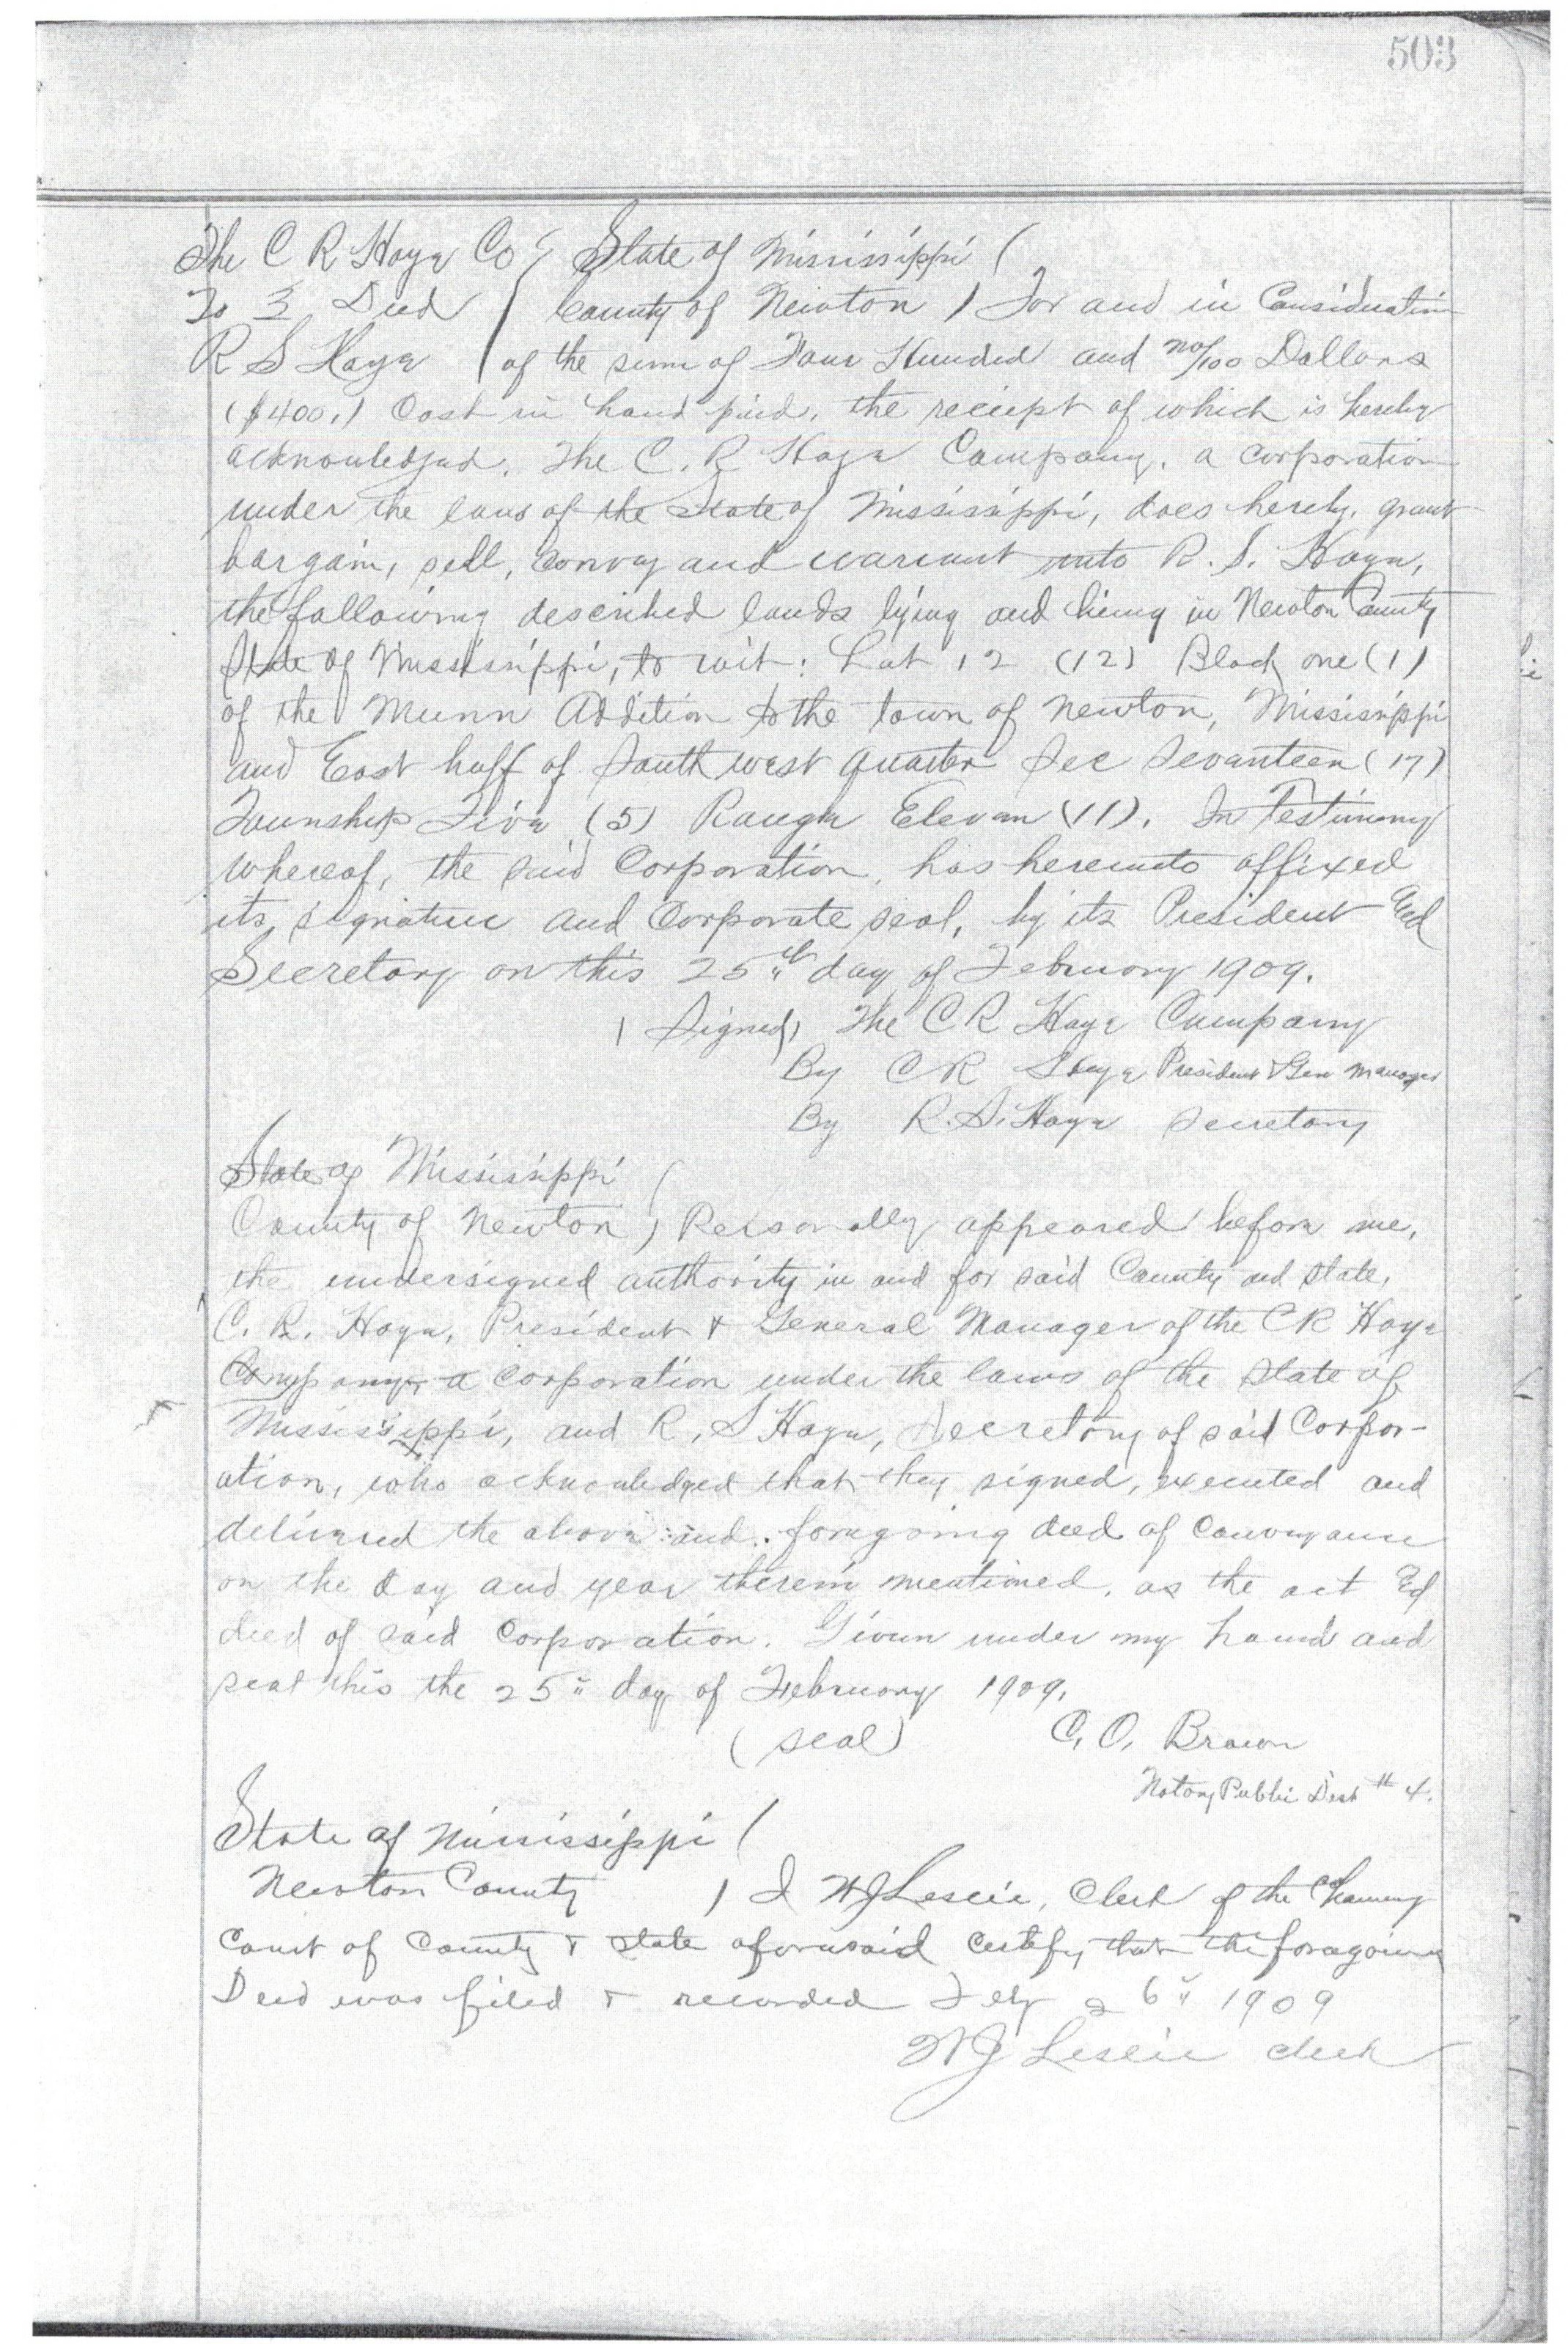 503
The C R Hoye Co { State of Mississippi (
To } Deed ( County of Newton ) For and in Consideration
R S Hoye of the sum of Four Hundred and no/100 Dollars
($400.) Cash in hand paid, the receipt of which is hereby
acknowledged. The C. R Hoye Company, a corporation
under the laws of the State of Mississippi, does hereby, grant
bargain, sell, convey and warrant unto R. S. Hoye,
the following described lands lying and being in Newton County
State of Mississippi, to wit: Lot 12 (12) Block one (1)
of the Munn Addition to the town of Newton, Mississippi
and East half of South west quarter Sec Seventeen (17)
Township Five (5) Range Eleven (11). In Testimony
whereof, the said Corporation, has hereunto affixed
its signature and Corporate seal, by its President and
Secretary on this 25th day of February 1909.
(Signed) The C R Hoye Company
By C R Hoye President & Gen Manager
By R. S. Hoye Secretary
State of Mississippi (
County of Newton ) Personally appeared before me,
the undersigned authority in and for said County and State,
C. R. Hoye, President & General Manager of the C R Hoye
Company, a corporation under the laws of the State of
Mississippi, and R. S Hoye, Secretary of said Corpor-
ation, who acknowledged that they signed, executed and
delivered the above and foregoing deed of Conveyance
on the day and year therein mentioned, as the act and
deed of said Corporation. Given under my hand and
seal this the 25" day of February 1909.
(Seal) C. O. Brown
Notary Public Dist # 4.
State of Mississippi (
Newton County ) I W J Leslie, Clerk of the Chancery
Court of County & State aforesaid certify that the foregoing
Deed was filed & recorded Feby 26" 1909
W J Leslie Clerk